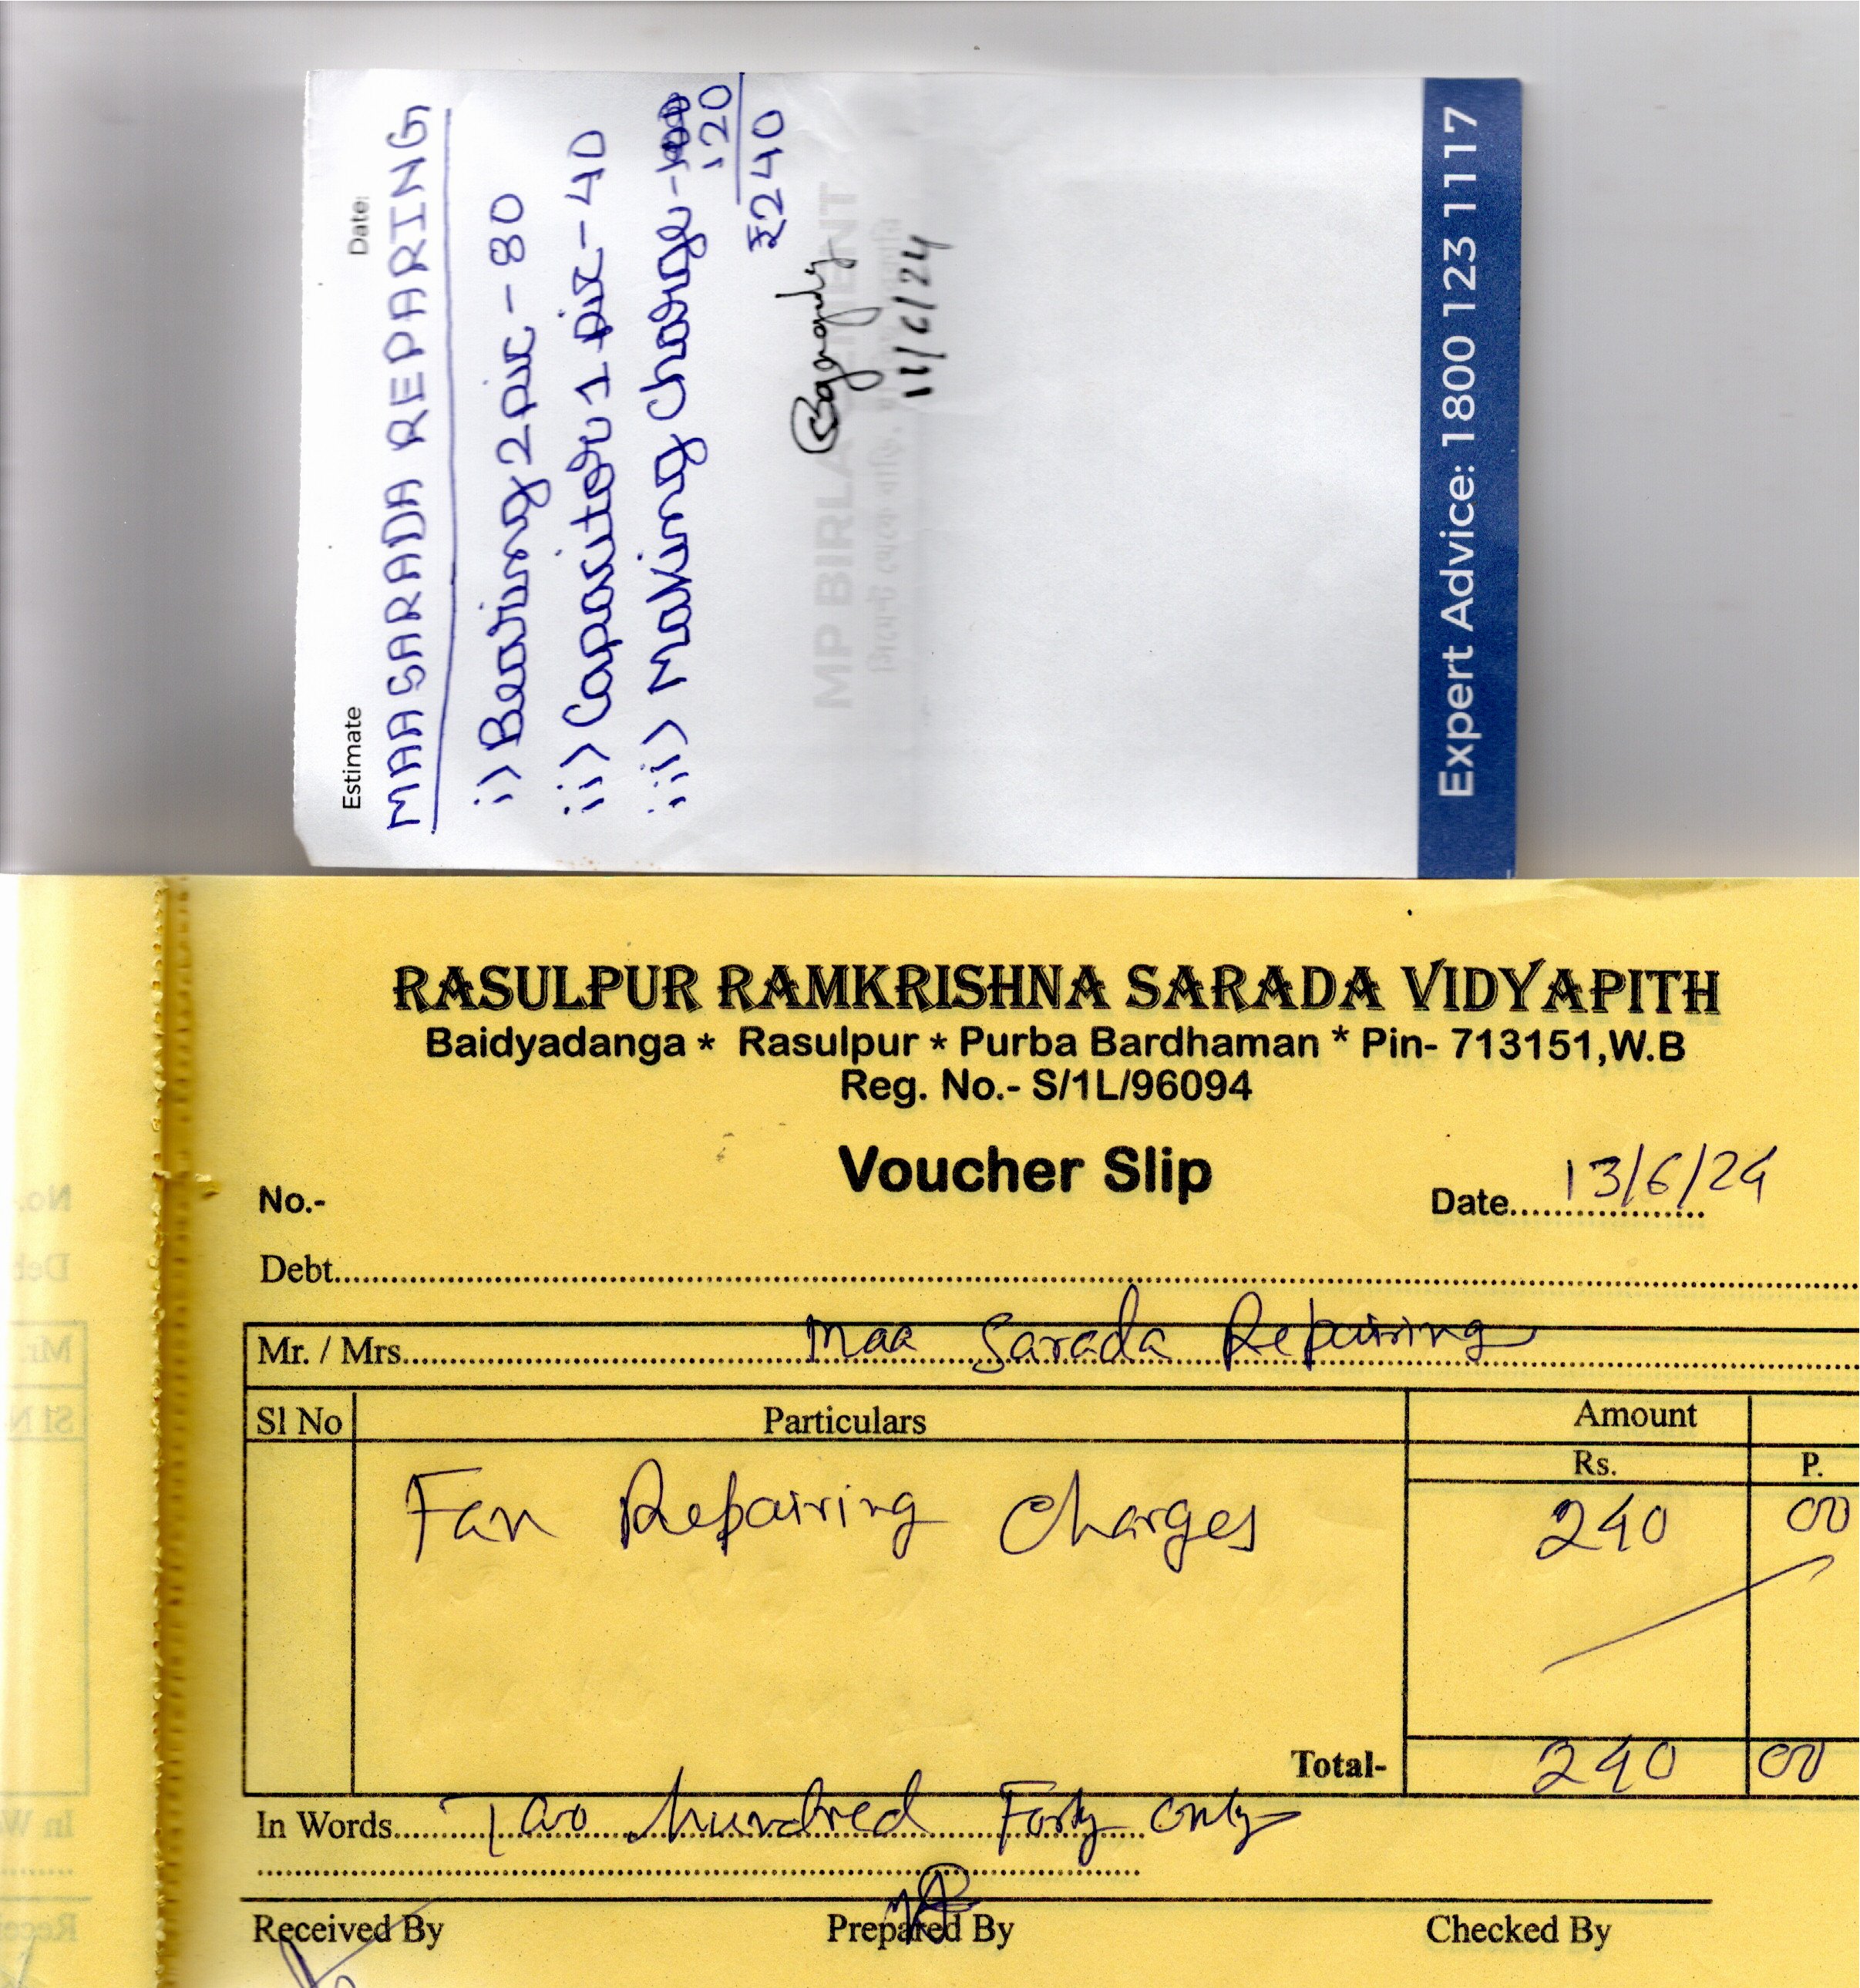 Estimate Date:
MAA SARADA REPARING
i) Bearing 2 pic - 80
ii) Capacitor 1 pic - 40
iii) Making Charge - 100
120
₹240
11/6/24
MP BIRLA CEMENT
Expert Advice: 1800 123 1117
RASULPUR RAMKRISHNA SARADA VIDYAPITH
Baidyadanga * Rasulpur * Purba Bardhaman * Pin- 713151,W.B
Reg. No.- S/1L/96094
Voucher Slip
No.- Date 13/6/24
Debt
Mr. / Mrs. Maa Sarada Repairing
Sl No Particulars Amount
Rs. P.
Fan Repairing Charges 240 00
Total- 240 00
In Words Two hundred Forty only
Received By Prepared By Checked By